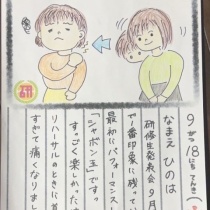 研
9がつ18にち てんき(
なまえ ひのは
研修生発表会9月
一番印象に残って
最初にパフォーマンス
「シャボン玉」ですっ
ごく楽しかった
リハーサルのときに首
すぎて痛くなりまし